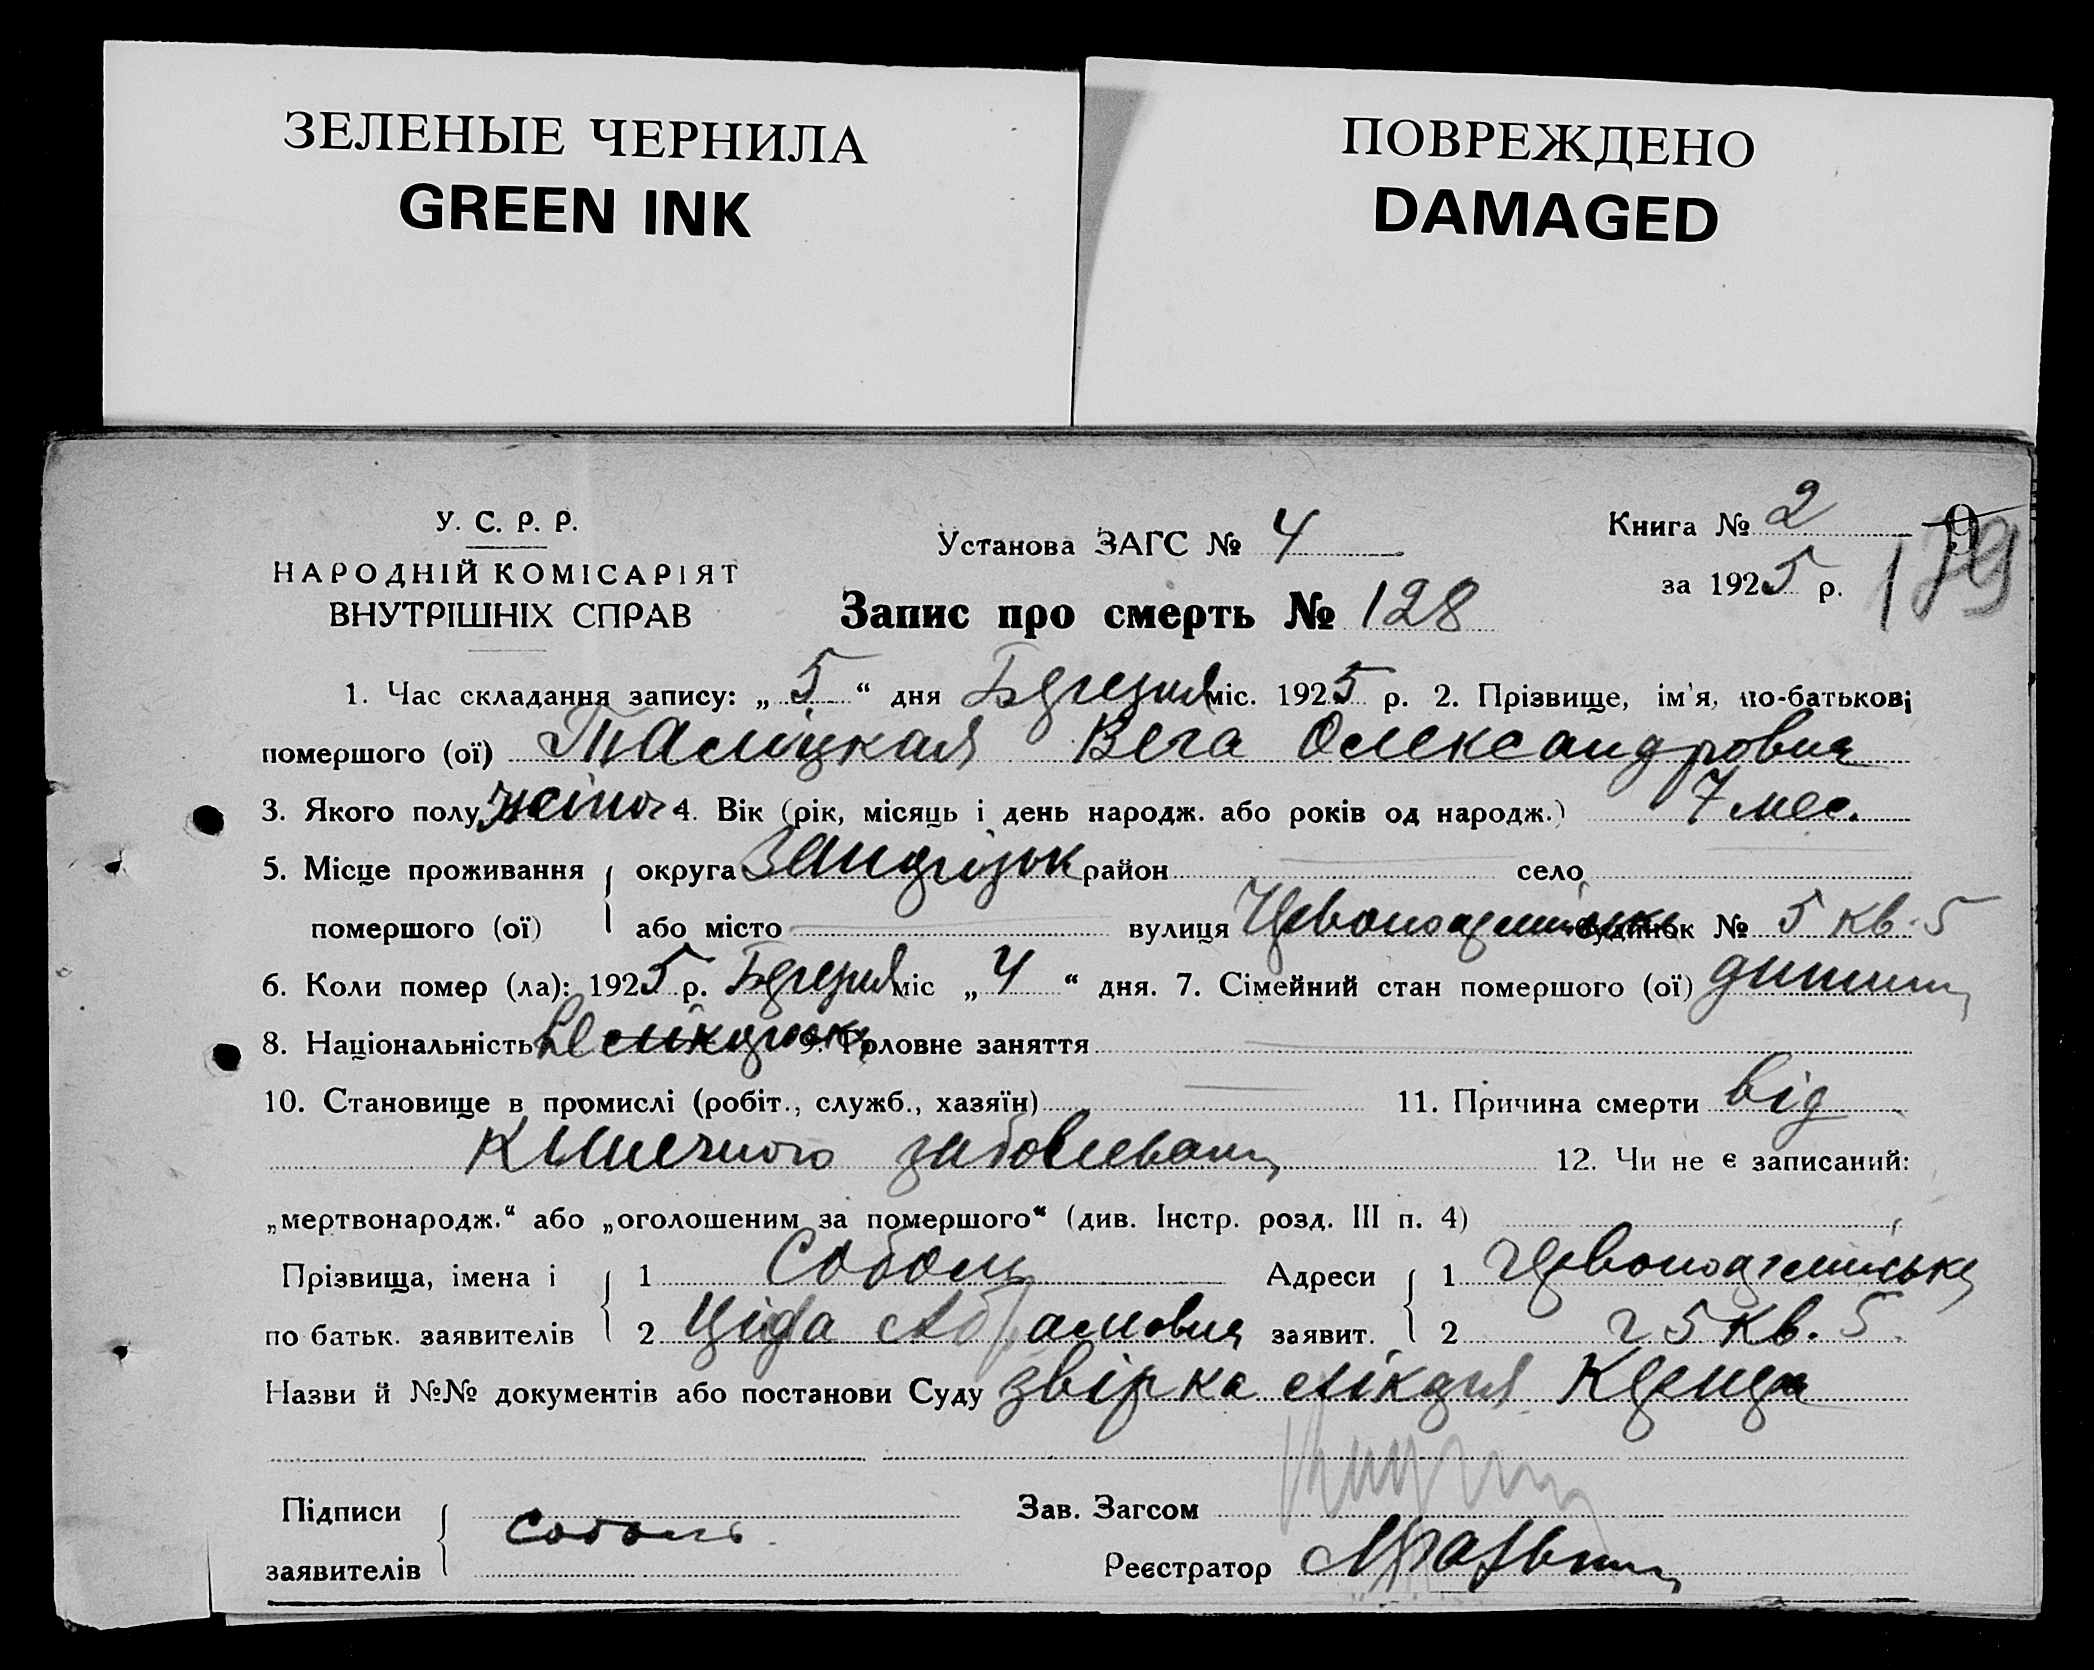 ЗЕЛЕНЫЕ ЧЕРНИЛА
GREEN INK
ПОВРЕЖДЕНО
DAMAGED
У. С. Р. Р.
НАРОДНІЙ КОМІСАРІЯТ
ВНУТРІШНІХ СПРАВ
Установа ЗАГС № 4
Книга № 2
за 1925 р.
179
Запис про смерть № 128
1. Час складання запису: „ 5 “ дня Березня міс. 1925 р. 2. Прізвище, ім'я, по-батькові
помершого (ої) Вега Олександровна
3. Якого полу жіноч 4. Вік (рік, місяць і день народж. або років од народж.) 7 мес.
5. Місце проживання округа район село
помершого (ої) або місто вулиця будинок № 5 кв. 5
6. Коли помер (ла): 1925 р. Березня міс „ 4 “ дня. 7. Сімейний стан помершого (ої) дитина
8. Національність 9. Головне заняття
10. Становище в промислі (робіт., служб., хазяїн) 11. Причина смерти від
Кишечного заболевания 12. Чи не є записаний:
„мертвонародж.“ або „оголошеним за помершого“ (див. Інстр. розд. III п. 4)
Прізвища, імена і 1 Соболь Адреси 1
по батьк. заявителів 2 Абрамовна заявит. 2 5 кв. 5
Назви й №№ документів або постанови Суду
Підписи Соболь Зав. Загсом
заявителів Реєстратор